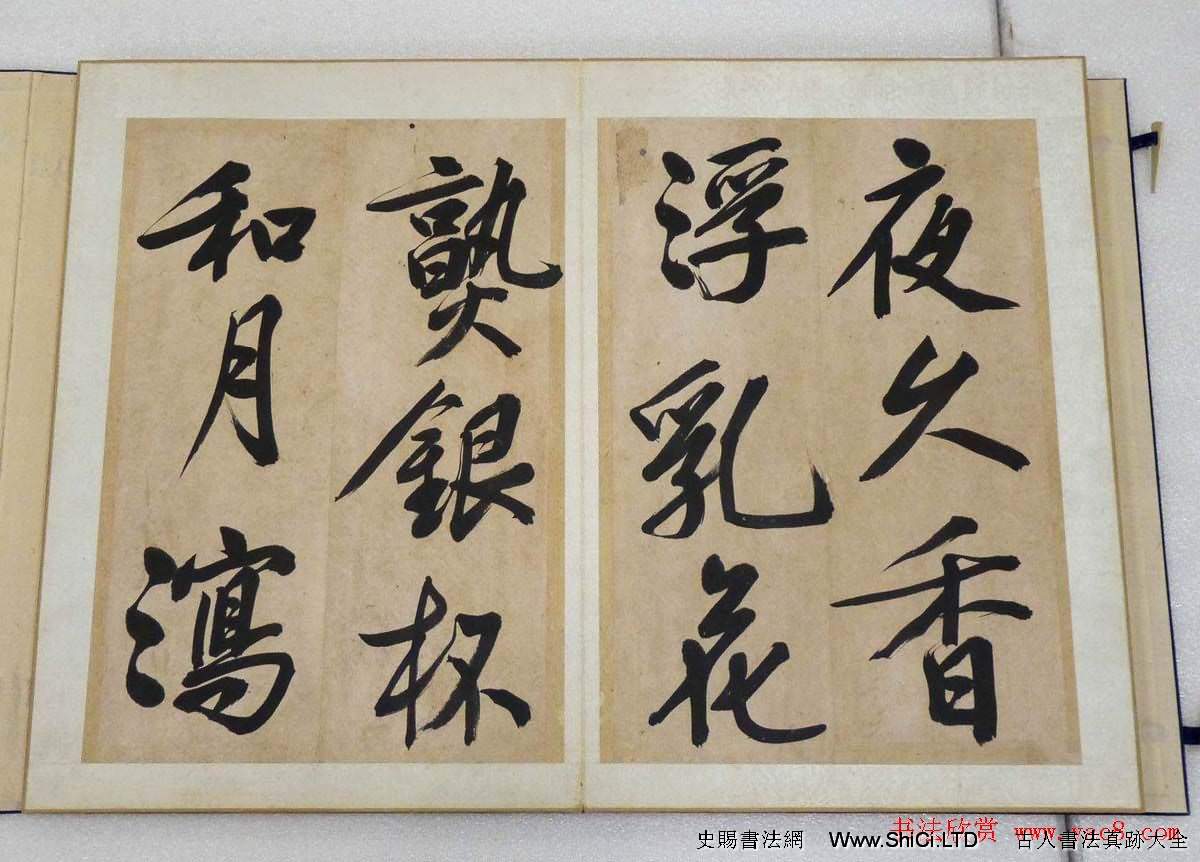 夜久香
浮乳花
熟銀杯
和月瀉
书法欣赏 www.yac8.com
史賜書法網 Www.ShiCi.LTD 古人書法真跡大全